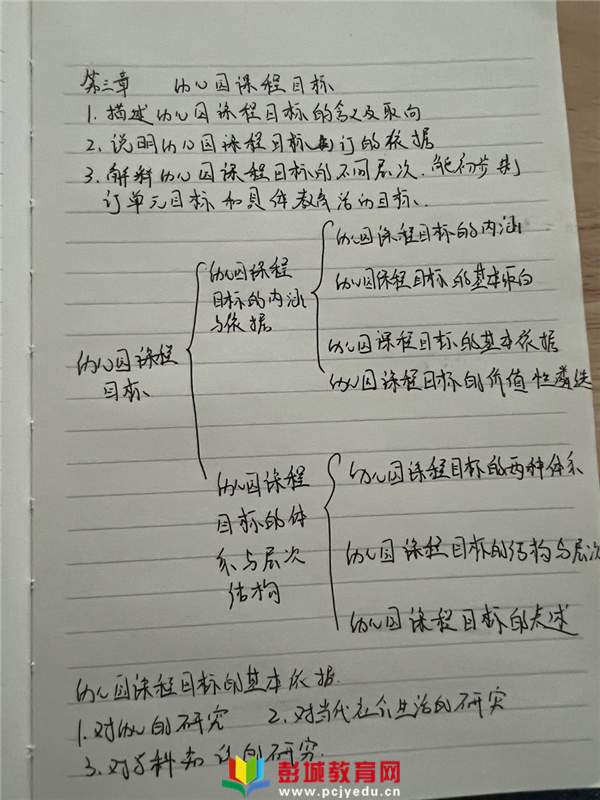 第三章 幼儿园课程目标
1. 描述幼儿园课程目标的含义及取向
2. 说明幼儿园课程目标制订的依据
3. 解释幼儿园课程目标的不同层次,能初步制
订单元目标和具体教育活动目标.
幼儿园课程
目标
幼儿园课程
目标的内涵
与依据
幼儿园课程目标的内涵
幼儿园课程目标的基本取向
幼儿园课程目标的基本依据
幼儿园课程目标的价值性
幼儿园课程
目标的体
系与层次
结构
幼儿园课程目标的两种体系
幼儿园课程目标的结构与层次
幼儿园课程目标的表述
幼儿园课程目标的基本依据
1.对幼儿的研究 2.对当代社会生活的研究
3.对学科知识的研究.
彭城教育网
www.pcjyedu.cn